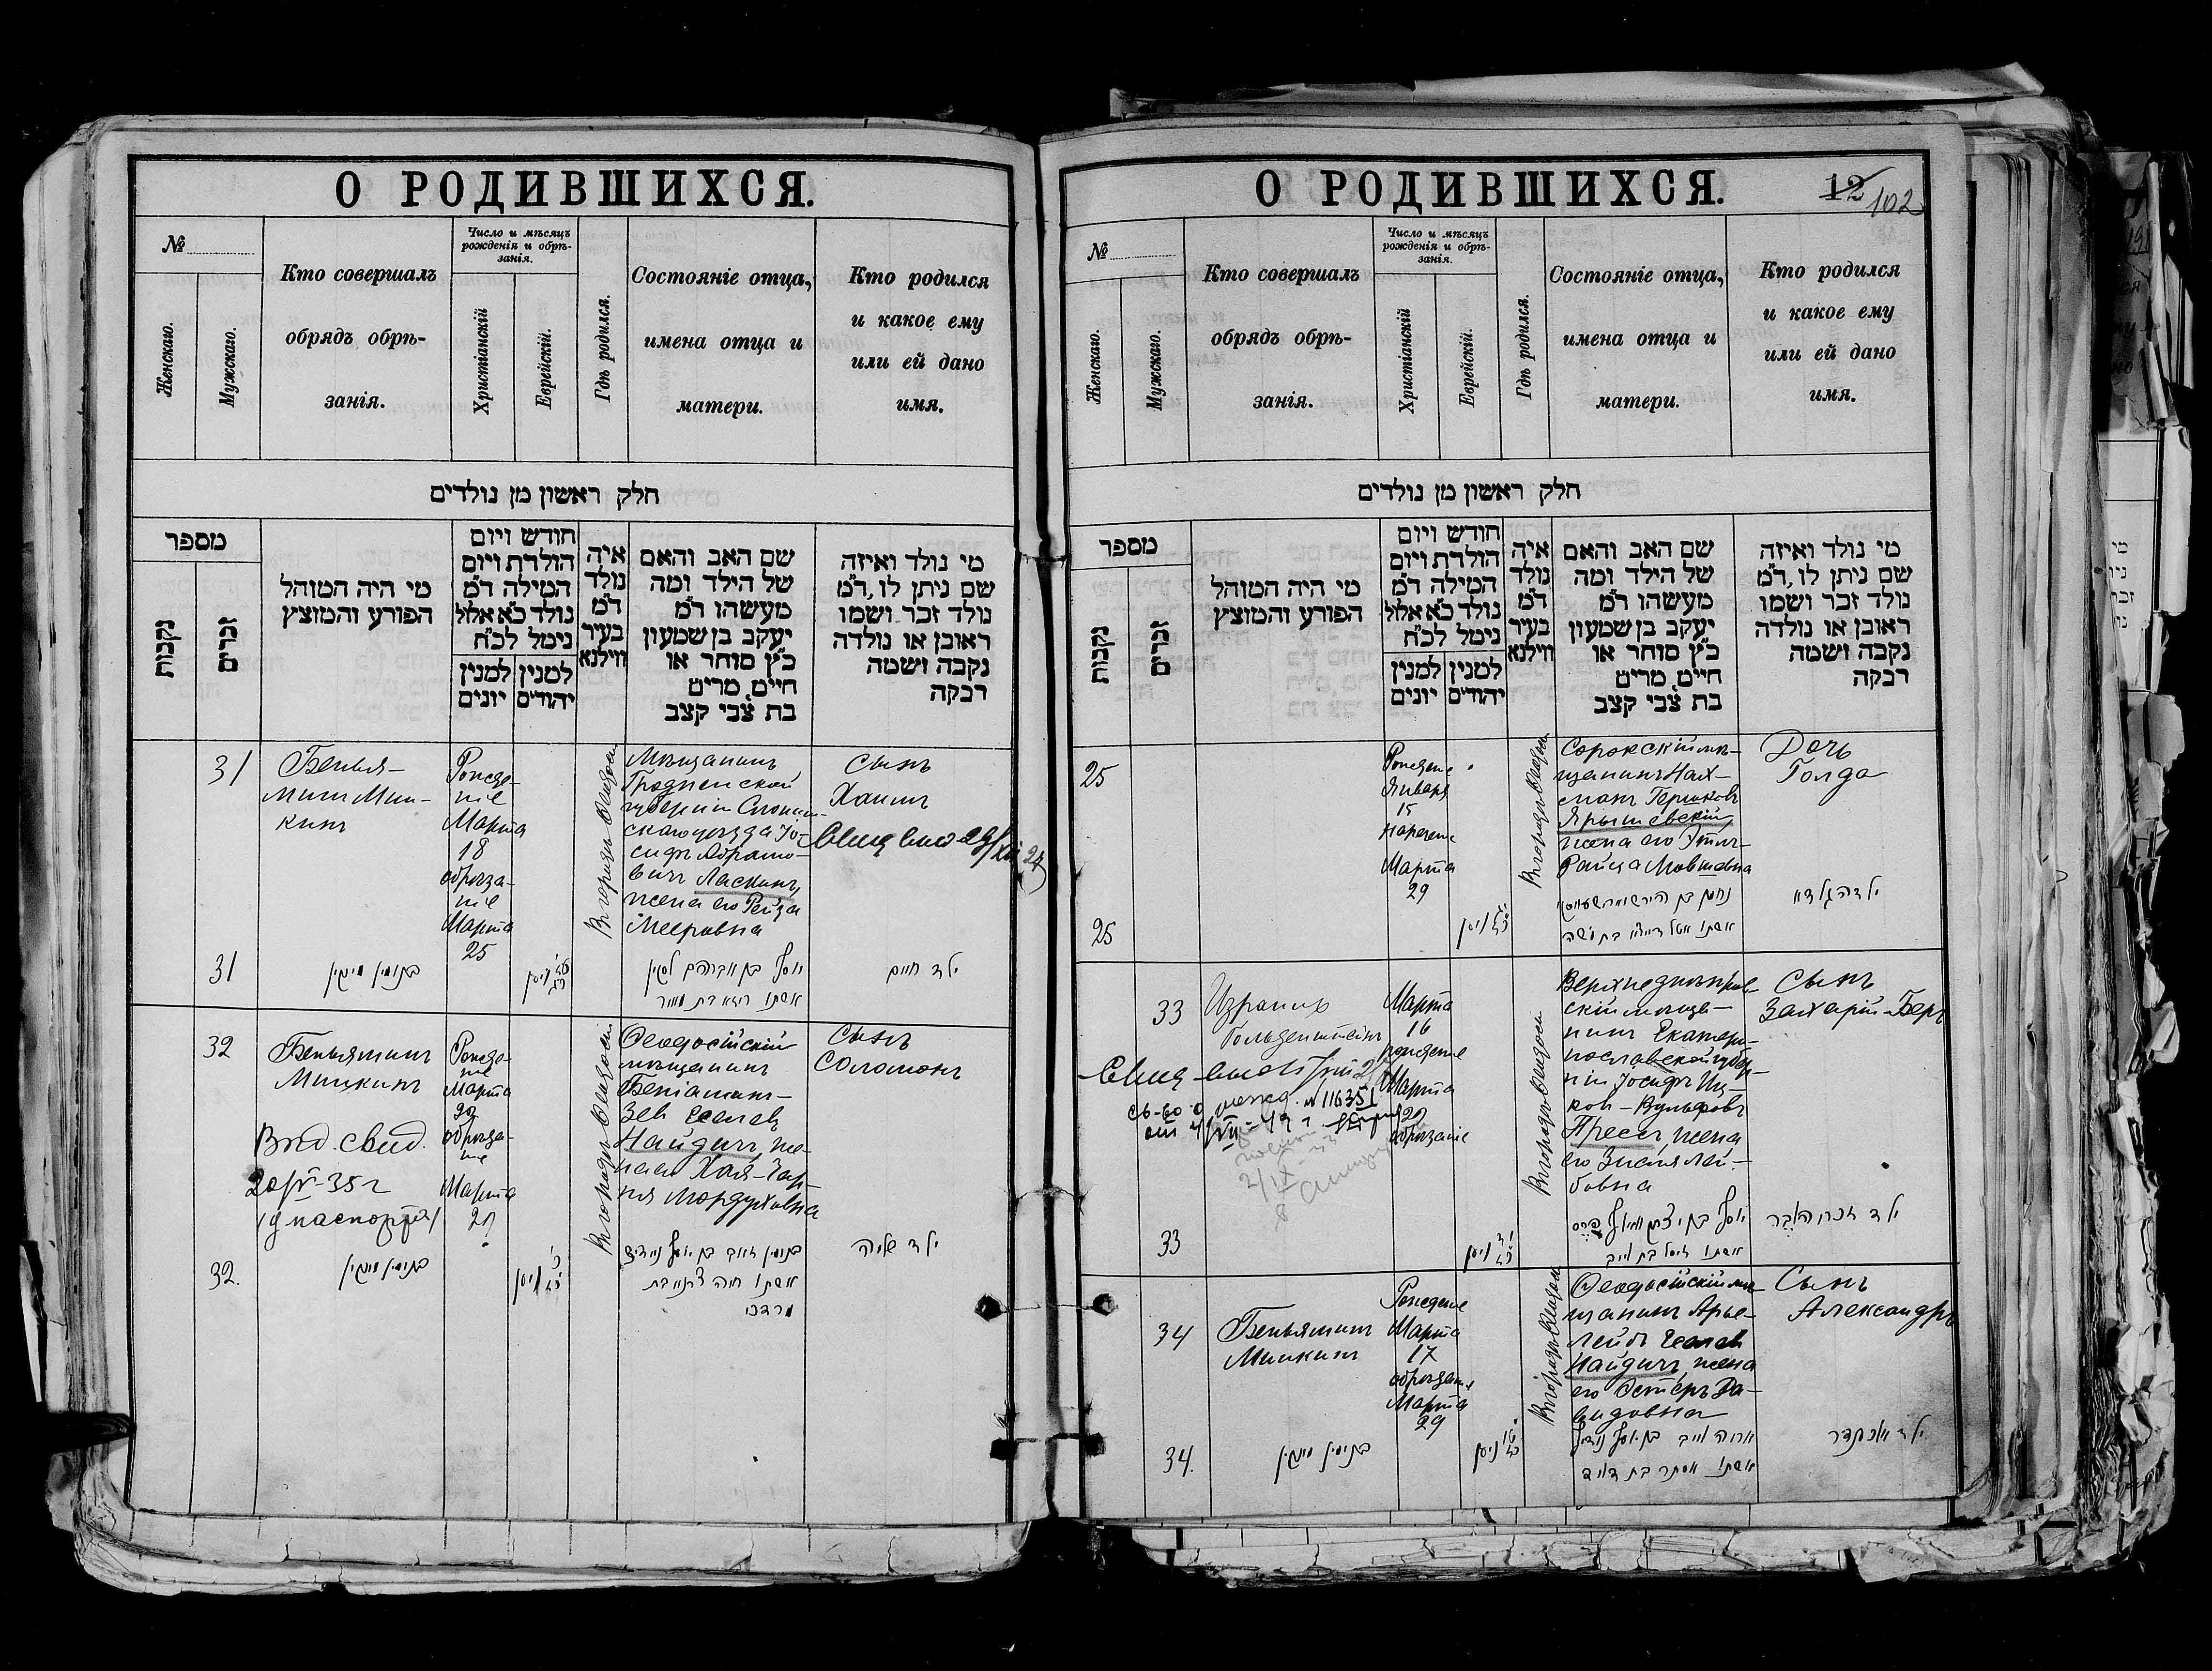 О РОДИВШИХСЯ.
№
Женскаго.
Мужскаго.
Кто совершалъ
обрядъ обрѣ-
занія.
Число и мѣсяцъ
рожденія и обрѣ-
занія.
Христіанскій
Еврейскій.
Гдѣ родился.
Состояніе отца,
имена отца и
матери.
Кто родился
и какое ему
или ей дано
имя.
חלק ראשון מן נולדים
מספר
נקבות
זכרים
מי היה המוהל
הפורע והמוצץ
חודש ויום
הולדת ויום
המילה ד״מ
נולד כ״א אלול
נימל לכ״ח
למנין יהודים
למנין יונים
איה
נולד
ד״מ
בעיר
ווילנא
שם האב והאם
של הילד ומה
מעשהו ד״מ
יעקב בן שמעון
כ״ץ סוחר או
חייט, מרים
בת צבי קצב
מי נולד ואיזה
שם ניתן לו, ד״מ
נולד זכר ושמו
ראובן או נולדה
נקבה ושמה
רבקה
31
Бенья-
минъ Мин-
кинъ
Рожде-
ніе
Марта
18
обрѣза-
ніе
Марта
25
Мѣщанинъ
Гродненской
губерніи Слоним-
скаго уѣзда Іо-
сифъ Абрамо-
вичъ Ласкинъ,
жена его Рейза
Мееровна
Сынъ
Хаимъ
31
בנימין מינקין
ניסן
יוסף בן אברהם לסקין
אשתו רייזא בת מאיר
ילד חיים
32
Беньяминъ
Минкинъ
Выд. свид.
20/V-35 г
Рожде-
ніе
Марта
20
обрѣза-
ніе
Марта
27
Въ городѣ Ѳеодосіи
Ѳеодосійскій
мѣщанинъ
Беніаминъ-
Зевъ
Найдичъ, же-
на его Хая-Чар-
на Мордуховна
Сынъ
Соломонъ
32.
בנימין מינקין
ניסן
בנימין זאב בן יוסף נײדיץ
אשתו חיה צרנא בת
מרדכי
ילד שלמה
О РОДИВШИХСЯ.
12
102
№
Женскаго.
Мужскаго.
Кто совершалъ
обрядъ обрѣ-
занія.
Число и мѣсяцъ
рожденія и обрѣ-
занія.
Христіанскій
Еврейскій.
Гдѣ родился.
Состояніе отца,
имена отца и
матери.
Кто родился
и какое ему
или ей дано
имя.
חלק ראשון מן נולדים
מספר
נקבות
זכרים
מי היה המוהל
הפורע והמוצץ
חודש ויום
הולדת ויום
המילה ד״מ
נולד כ״א אלול
נימל לכ״ח
למנין יהודים
למנין יונים
איה
נולד
ד״מ
בעיר
ווילנא
שם האב והאם
של הילד ומה
מעשהו ד״מ
יעקב בן שמעון
כ״ץ סוחר או
חייט, מרים
בת צבי קצב
מי נולד ואיזה
שם ניתן לו, ד״מ
נולד זכר ושמו
ראובן או נולדה
נקבה ושמה
רבקה
25
Рожденіе
Января
15
нареченіе
Марта
29
Въ городѣ Ѳеодосіи
Сорокскій мѣ-
щанинъ Нах-
манъ Гершковъ
Ярышевскій
жена его
Райца Мовшовна
Дочь
Голда
25
ניסן
ילדה גולדא
33
Израиль
Гольденштейнъ
№ 116351
Марта
16
рожденіе
Марта
обрѣзаніе
Въ городѣ Ѳеодосіи
Верхнеднѣпров-
скій мѣща-
нинъ Екатери-
нославской губер-
ніи Іосифъ Иц-
ковъ-Вульфовъ
Пресъ, жена
его Зисля Лей-
бовна
Сынъ
Захарій-Беръ
33
ניסן
34
Беньяминъ
Минкинъ
Рожденіе
Марта
17
обрѣзаніе
Марта
29
Въ городѣ Ѳеодосіи
Ѳеодосійскій мѣ-
щанинъ Арье-
Лейбъ
Найдичъ, жена
его Эстеръ Да-
видовна
Сынъ
Александръ
34.
בנימין מינקין
ניסן
אשתו אסתר בת דוד
ילד אלכסנדר